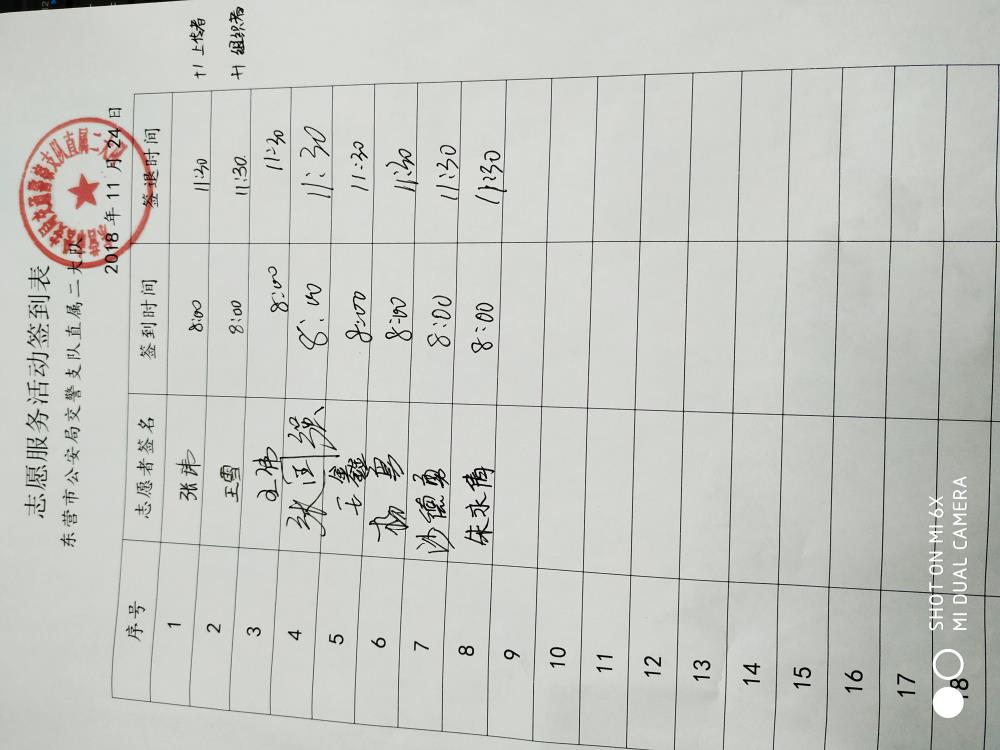 志愿服务活动签到表
东营市公安局交警支队直属二大队
2018年11月24日
序号 志愿者签名 签到时间 签退时间
1 张玮 8:00 11:30 +1 上传者
2 王雪 8:00 11:30 +1 组织者
3 王伟 8:00 11:30
4 张国强 8:00 11:30
5 王鑫 8:00 11:30
6 杨勇 8:00 11:30
7 沙德勇 8:00 11:30
8 朱永倩 8:00 11:30
9
10
11
12
13
14
15
16
17
18
SHOT ON MI 6X
MI DUAL CAMERA